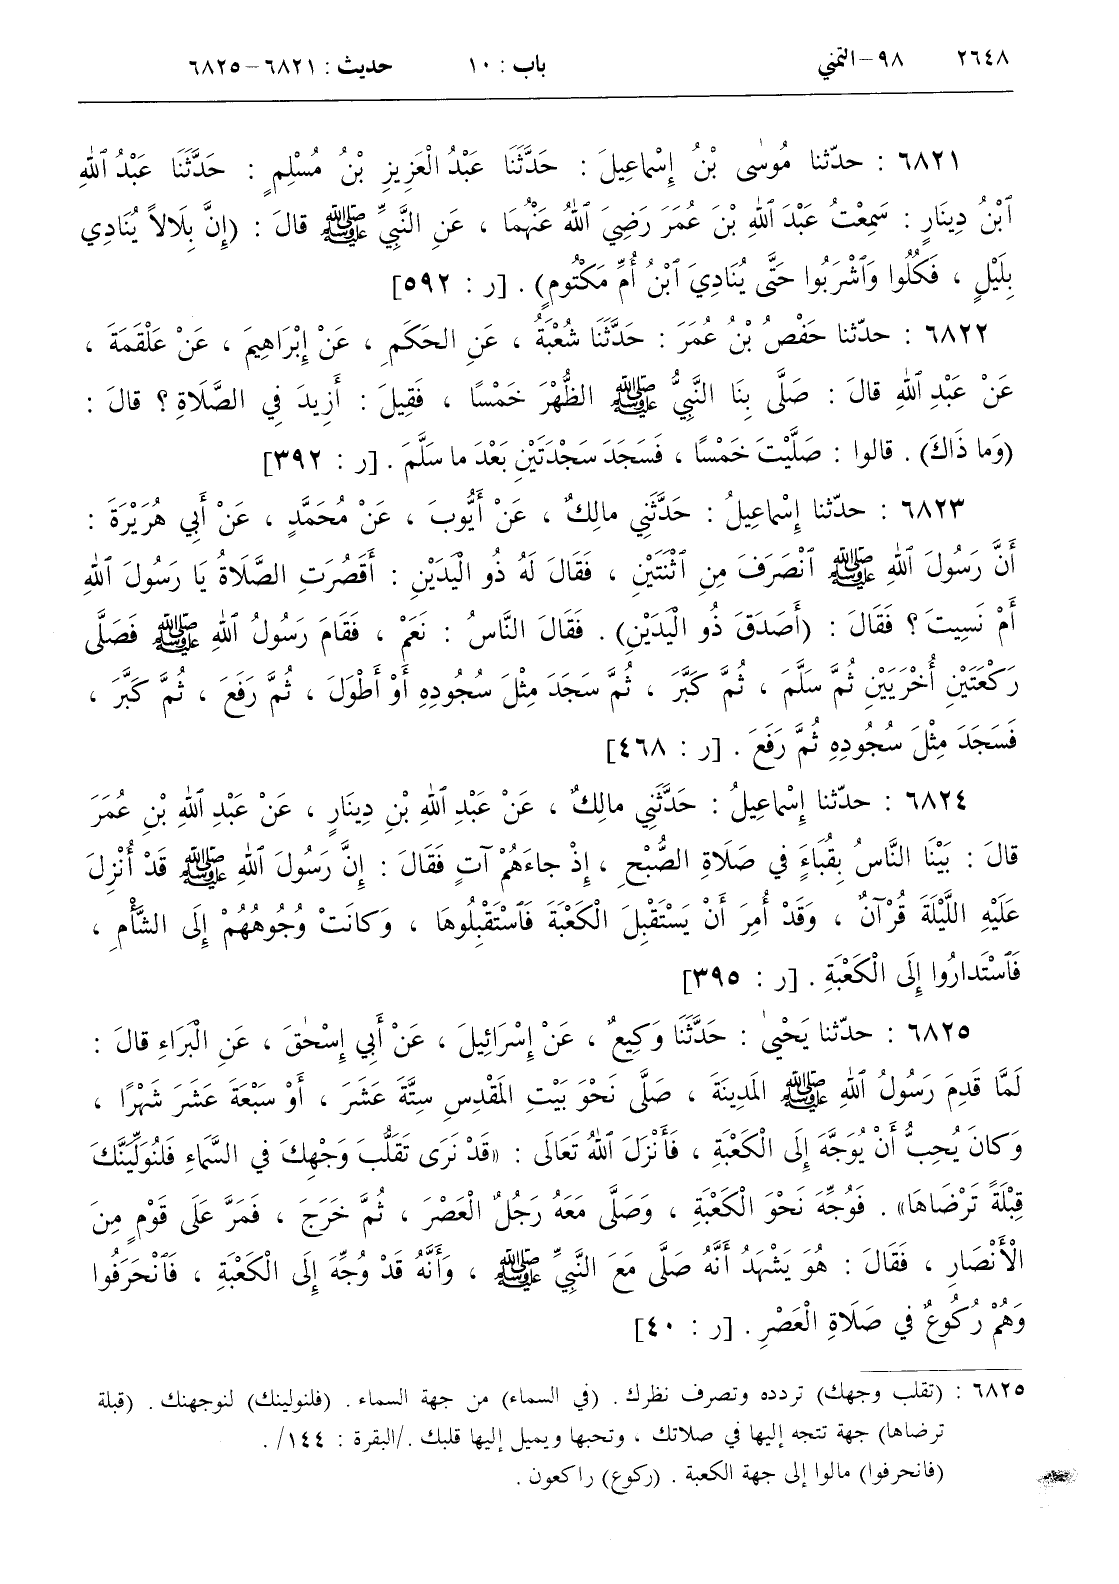 ٢٦٤٨ ٩٨-التمني باب : ١٠ حديث : ٦٨٢١-٦٨٢٥
٦٨٢١ : حدّثنا مُوسٰى بْنُ إِسْماعِيلَ : حَدَّثَنَا عَبْدُ الْعَزِيزِ بْنُ مُسْلِمٍ : حَدَّثَنَا عَبْدُ ٱللهِ
ٱبْنُ دِينَارٍ : سَمِعْتُ عَبْدَ ٱللهِ بْنَ عُمَرَ رَضِيَ ٱللهُ عَنْهُمَا ، عَنِ النَّبِيِّ ﷺ قالَ : (إِنَّ بِلَالاً يُنَادِي
بِلَيْلٍ ، فَكُلُوا وَٱشْرَبُوا حَتَّى يُنَادِيَ ٱبْنُ أُمِّ مَكْتُومٍ) . [ر : ٥٩٢]
٦٨٢٢ : حدّثنا حَفْصُ بْنُ عُمَرَ : حَدَّثَنَا شُعْبَةُ ، عَنِ الحَكَمِ ، عَنْ إِبْرَاهِيمَ ، عَنْ عَلْقَمَةَ ،
عَنْ عَبْدِ ٱللهِ قالَ : صَلَّى بِنَا النَّبِيُّ ﷺ الظُّهْرَ خَمْسًا ، فَقِيلَ : أَزِيدَ فِي الصَّلَاةِ ؟ قالَ :
(وَما ذَاكَ) . قالوا : صَلَّيْتَ خَمْسًا ، فَسَجَدَ سَجْدَتَيْنِ بَعْدَ ما سَلَّمَ . [ر : ٣٩٢]
٦٨٢٣ : حدّثنا إِسْماعِيلُ : حَدَّثَنِي مالِكٌ ، عَنْ أَيُّوبَ ، عَنْ مُحَمَّدٍ ، عَنْ أَبِي هُرَيْرَةَ :
أَنَّ رَسُولَ ٱللهِ ﷺ ٱنْصَرَفَ مِنِ ٱثْنَتَيْنِ ، فَقَالَ لَهُ ذُو الْيَدَيْنِ : أَقَصُرَتِ الصَّلَاةُ يَا رَسُولَ ٱللهِ
أَمْ نَسِيتَ ؟ فَقَالَ : (أَصَدَقَ ذُو الْيَدَيْنِ) . فَقَالَ النَّاسُ : نَعَمْ ، فَقَامَ رَسُولُ ٱللهِ ﷺ فَصَلَّى
رَكْعَتَيْنِ أُخْرَيَيْنِ ثُمَّ سَلَّمَ ، ثُمَّ كَبَّرَ ، ثُمَّ سَجَدَ مِثْلَ سُجُودِهِ أَوْ أَطْوَلَ ، ثُمَّ رَفَعَ ، ثُمَّ كَبَّرَ ،
فَسَجَدَ مِثْلَ سُجُودِهِ ثُمَّ رَفَعَ . [ر : ٤٦٨]
٦٨٢٤ : حدّثنا إِسْماعِيلُ : حَدَّثَنِي مالِكٌ ، عَنْ عَبْدِ ٱللهِ بْنِ دِينَارٍ ، عَنْ عَبْدِ ٱللهِ بْنِ عُمَرَ
قالَ : بَيْنَا النَّاسُ بِقُبَاءٍ فِي صَلَاةِ الصُّبْحِ ، إِذْ جاءَهُمْ آتٍ فَقَالَ : إِنَّ رَسُولَ ٱللهِ ﷺ قَدْ أُنْزِلَ
عَلَيْهِ اللَّيْلَةَ قُرْآنٌ ، وَقَدْ أُمِرَ أَنْ يَسْتَقْبِلَ الْكَعْبَةَ فَٱسْتَقْبِلُوهَا ، وَكانَتْ وُجُوهُهُمْ إِلَى الشَّأْمِ ،
فَٱسْتَدارُوا إِلَى الْكَعْبَةِ . [ر : ٣٩٥]
٦٨٢٥ : حدّثنا يَحْيىٰ : حَدَّثَنَا وَكِيعٌ ، عَنْ إِسْرَائِيلَ ، عَنْ أَبِي إِسْحٰقَ ، عَنِ الْبَرَاءِ قالَ :
لَمَّا قَدِمَ رَسُولُ ٱللهِ ﷺ المَدِينَةَ ، صَلَّى نَحْوَ بَيْتِ المَقْدِسِ سِتَّةَ عَشَرَ ، أَوْ سَبْعَةَ عَشَرَ شَهْرًا ،
وَكانَ يُحِبُّ أَنْ يُوَجَّهَ إِلَى الْكَعْبَةِ ، فَأَنْزَلَ ٱللهُ تَعَالَى : «قَدْ نَرَى تَقَلُّبَ وَجْهِكَ فِي السَّمَاءِ فَلَنُوَلِّيَنَّكَ
قِبْلَةً تَرْضَاهَا» . فَوُجِّهَ نَحْوَ الْكَعْبَةِ ، وَصَلَّى مَعَهُ رَجُلٌ الْعَصْرَ ، ثُمَّ خَرَجَ ، فَمَرَّ عَلَى قَوْمٍ مِنَ
الْأَنْصَارِ ، فَقَالَ : هُوَ يَشْهَدُ أَنَّهُ صَلَّى مَعَ النَّبِيِّ ﷺ ، وَأَنَّهُ قَدْ وُجِّهَ إِلَى الْكَعْبَةِ ، فَٱنْحَرَفُوا
وَهُمْ رُكُوعٌ فِي صَلَاةِ الْعَصْرِ . [ر : ٤٠]
٦٨٢٥ : (تقلب وجهك) تردده وتصرف نظرك . (في السماء) من جهة السماء . (فلنولينك) لنوجهنك . (قبلة
ترضاها) جهة تتجه إليها في صلاتك ، وتحبها ويميل إليها قلبك ./البقرة : ١٤٤/ .
(فانحرفوا) مالوا إلى جهة الكعبة . (ركوع) راكعون .